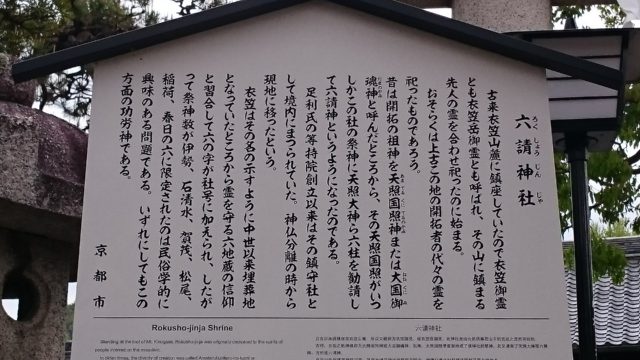 六請神社
ろくしょうじんじゃ
古来衣笠山麓に鎮座していたので衣笠御霊
とも衣笠岳御霊とも呼ばれ、その山に鎮まる
先人の霊を合わせ祀ったのに始まる。
おそらくは上古この地の開拓者の代々の霊を
祀ったものであろう。
昔は開拓の祖神を天照国照神または大国御
魂神と呼んだところから、その天照国照がいつ
しかこの社の祭神に天照大神ら六柱を勧請し
て六請神というようになったのである。
足利氏の等持院創立以来はその鎮守社と
して境内にまつられていた。神仏分離の時から
現地に移ったという。
衣笠はその名の示すように中世以来埋葬地
となっていたところから霊を守る六地蔵の信仰
と習合して六の字が社号に加えられ、したが
って祭神数が伊勢、石清水、賀茂、松尾、
稲荷、春日の六に限定されたのは民俗学的に
興味のある問題である。いずれにしてもこの
方面の功労神である。
京都市
Rokusho-jinja Shrine
Standing at the foot of Mt. Kinugasa, Rokusho-jinja was originally dedicated to the spirits of
people interred on the mountain.
六请神社